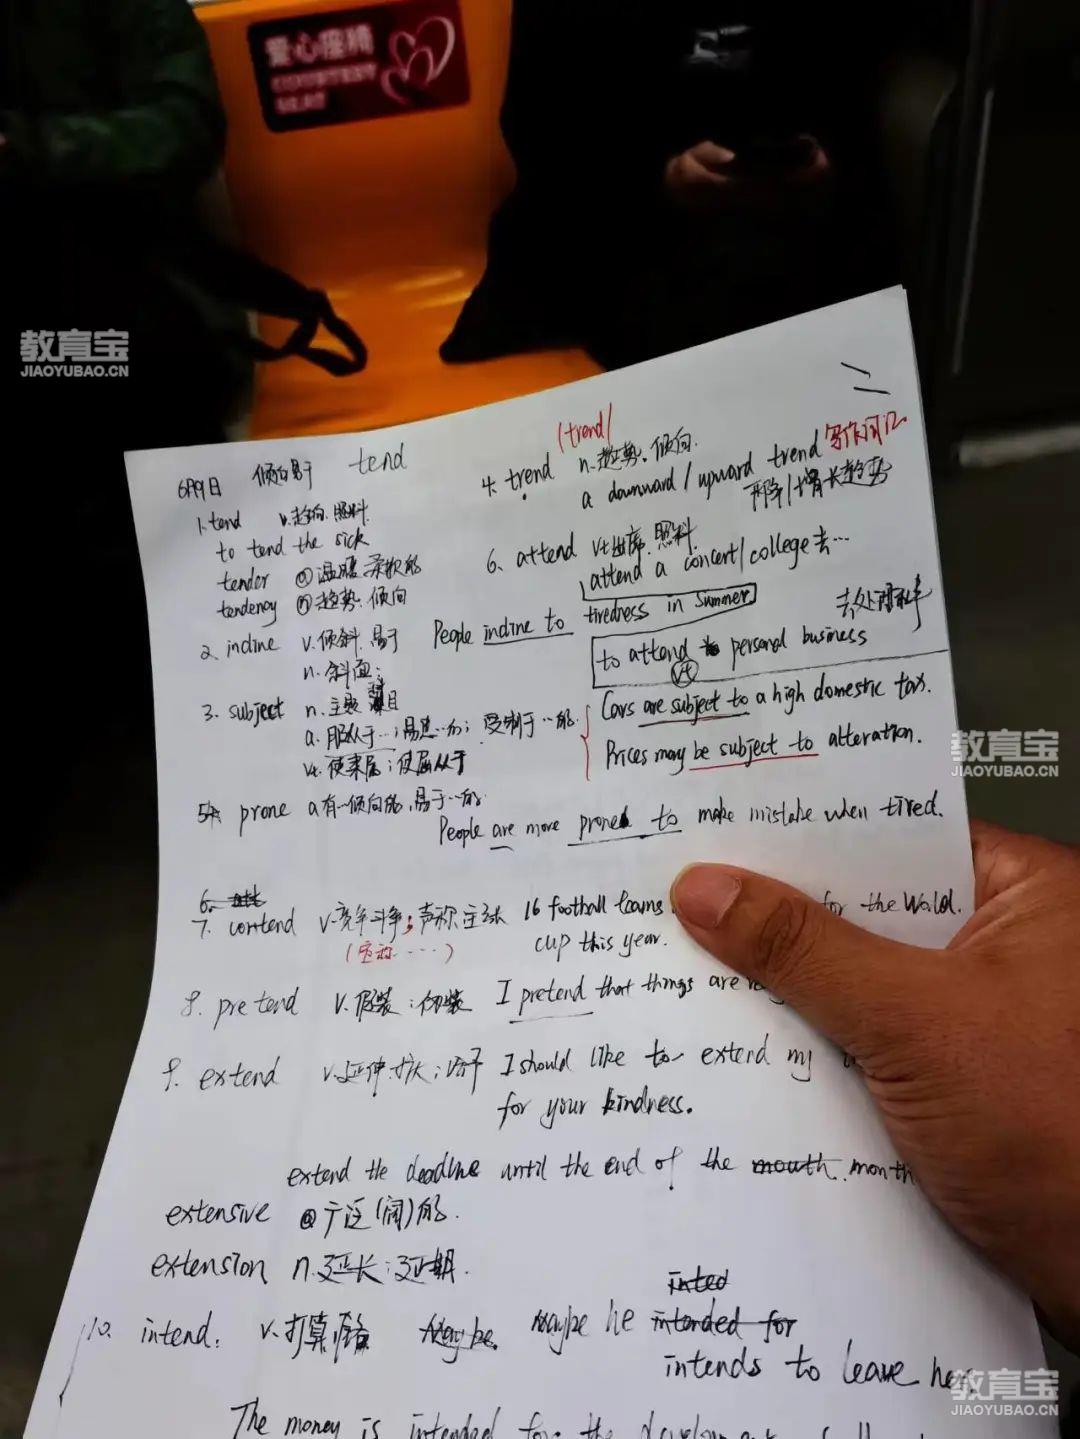 爱心座椅
COURTESY
SEAT
教育宝
JIAOYUBAO.CN
二
6月9日 倾向易于 tend
1. tend v.趋向.照料.
to tend the sick
tender ⓐ温暖 柔软的
tendency ⓝ趋势.倾向
2. incline v.倾斜.易于
n.斜面;
People incline to tiredness in Summer
3. subject n.主题 科目
a.服从于…;易患…的;受制于…的
vt.使隶属;使屈从于
Cars are subject to a high domestic tax.
Prices may be subject to alteration.
(trend)
4. trend n.趋势.倾向.
a downward / upward trend
下降/增长趋势
6. attend vt出席.照料.
attend a concert/college去…
去处理私事
to attend to personal business
vt
5 prone a有…倾向的,易于…的
People are more prone to make mistake when tired.
6.
7. contend v.竞争斗争;声称 16 football teams for the World.
cup this year.
8. pretend v.假装;伪装 I pretend that things are
9. extend v.延伸.扩大;给予 I should like to extend my
for your kindness.
extend the deadline until the end of the mouth.month
extensive ⓐ广泛(阔)的.
extension n.延长;延期.
10. intend. v.打算 Maybe. Maybe he intended for
inted
intends to leave her
The money is intended for the
教育宝
JIAOYUBAO.CN
教育宝
JIAOYUBAO.CN